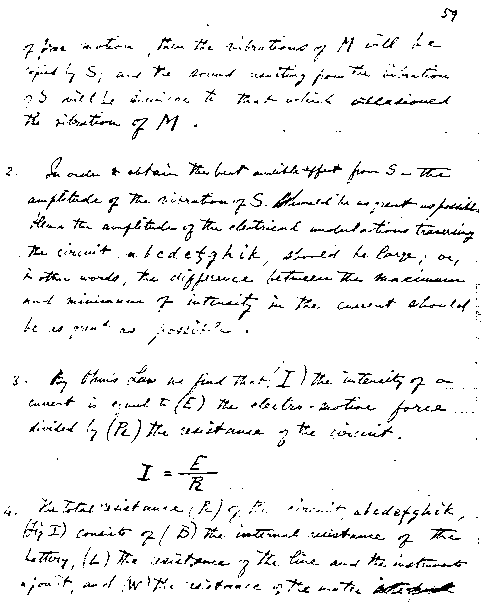 59
of free motion, then the vibrations of M will be
copied by S, and the sound resulting from the vibration
of S will be similar to that which occasioned
the vibration of M.
2. In order to obtain the best audible effect from S — the
amplitude of the vibration of S. should be as great as possible.
Hence the amplitude of the electrical undulations traversing
the circuit a b c d e f g h i k, should be large; or,
in other words, the difference between the maximum
and minimum of intensity in the current should
be as great as possible.
3. By Ohm's Law we find that (I) the intensity of a
current is equal to (E) the electro-motive force
divided by (R) the resistance of the circuit.
I = E/R
4. The total resistance (R) of the circuit, abcdefghik,
(Fig I) consists of (B) the internal resistance of the
battery, (L) the resistance of the line and the instrument
upon it, and (W) the resistance of the water